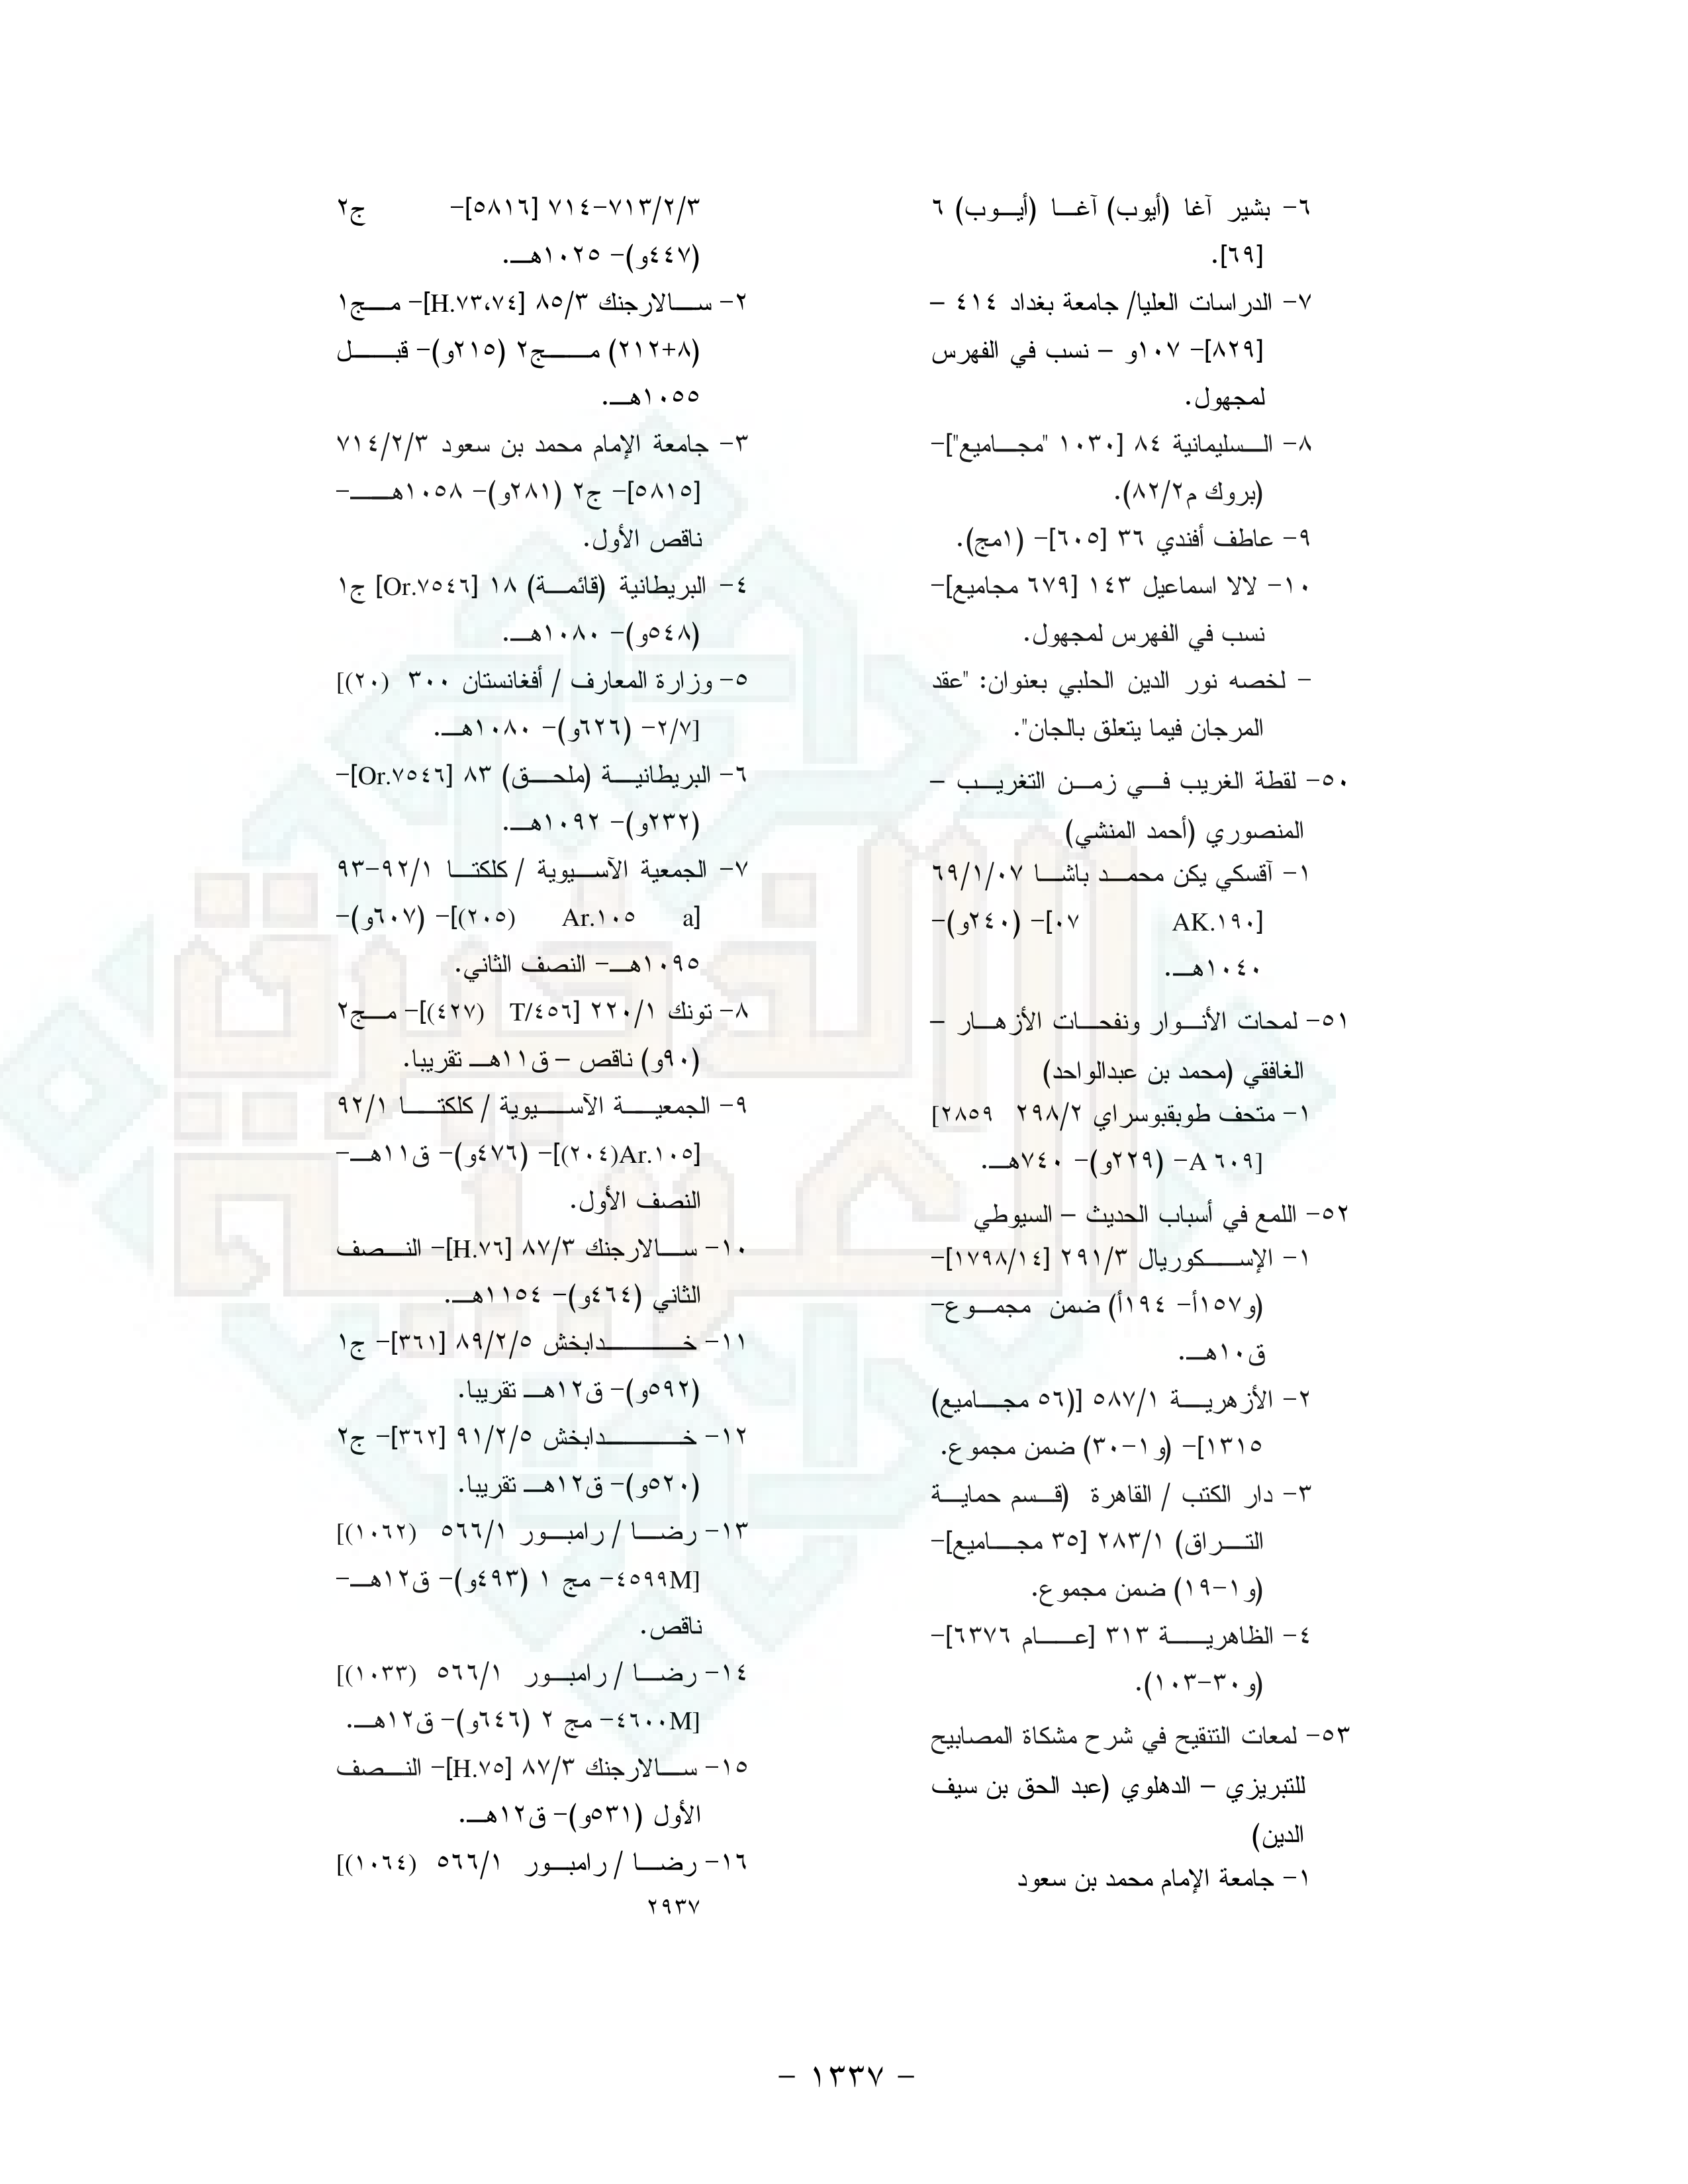 ٦- بشير آغا (أيوب) آغـا (أيـوب) ٦
[٦٩].
٧- الدراسات العليا/ جامعة بغداد ٤١٤ –
[٨٢٩]- ١٠٧و – نسب في الفهرس
لمجهول.
٨- السليمانية ٨٤ [١٠٣٠ "مجاميع"]-
(بروك م٨٢/٢).
٩- عاطف أفندي ٣٦ [٦٠٥]- (١مج).
١٠- لالا اسماعيل ١٤٣ [٦٧٩ مجاميع]-
نسب في الفهرس لمجهول.
- لخصه نور الدين الحلبي بعنوان: "عقد
المرجان فيما يتعلق بالجان".
٥٠- لقطة الغريب في زمن التغريب –
المنصوري (أحمد المنشي)
١- آقسكي يكن محمد باشا ٦٩/١/٠٧
[AK.١٩٠ ٠٧]- (٢٤٠و)-
١٠٤٠هـ.
٥١- لمحات الأنوار ونفحات الأزهار –
الغافقي (محمد بن عبدالواحد)
١- متحف طوبقبوسراي ٢٩٨/٢ ٢٨٥٩]
[A ٦٠٩- (٢٢٩و)- ٧٤٠هـ.
٥٢- اللمع في أسباب الحديث – السيوطي
١- الإسكوريال ٢٩١/٣ [١٧٩٨/١٤]-
(و١٥٧أ- ١٩٤أ) ضمن مجموع-
ق١٠هـ.
٢- الأزهرية ٥٨٧/١ [(٥٦ مجاميع)
١٣١٥]- (و١-٣٠) ضمن مجموع.
٣- دار الكتب / القاهرة (قسم حماية
التراق) ٢٨٣/١ [٣٥ مجاميع]-
(و١-١٩) ضمن مجموع.
٤- الظاهرية ٣١٣ [عام ٦٣٧٦]-
(و٣٠-١٠٣).
٥٣- لمعات التنقيح في شرح مشكاة المصابيح
للتبريزي – الدهلوي (عبد الحق بن سيف
الدين)
١- جامعة الإمام محمد بن سعود
٧١٣/٢/٣-٧١٤ [٥٨١٦]- ج٢
(٤٤٧و)- ١٠٢٥هـ.
٢- سالارجنك ٨٥/٣ [H.٧٣،٧٤]- مج١
(٨+٢١٢) مج٢ (٢١٥و)- قبل
١٠٥٥هـ.
٣- جامعة الإمام محمد بن سعود ٧١٤/٢/٣
[٥٨١٥]- ج٢ (٢٨١و)- ١٠٥٨هـ-
ناقص الأول.
٤- البريطانية (قائمة) ١٨ [Or.٧٥٤٦] ج١
(٥٤٨و)- ١٠٨٠هـ.
٥- وزارة المعارف / أفغانستان ٣٠٠ (٢٠)]
[٢/٧- (٦٢٦و)- ١٠٨٠هـ.
٦- البريطانية (ملحق) ٨٣ [Or.٧٥٤٦]-
(٢٣٢و)- ١٠٩٢هـ.
٧- الجمعية الآسيوية / كلكتا ٩٢/١-٩٣
[a Ar.١٠٥ (٢٠٥)]- (٦٠٧و)-
١٠٩٥هـ- النصف الثاني.
٨- تونك ٢٢٠/١ [T/٤٥٦ (٤٢٧)]- مج٢
(٩٠و) ناقص – ق١١هـ تقريبا.
٩- الجمعية الآسيوية / كلكتا ٩٢/١
[Ar.١٠٥(٢٠٤)]- (٤٧٦و)- ق١١هـ-
النصف الأول.
١٠- سالارجنك ٨٧/٣ [H.٧٦]- النصف
الثاني (٤٦٤و)- ١١٥٤هـ.
١١- خدابخش ٨٩/٢/٥ [٣٦١]- ج١
(٥٩٢و)- ق١٢هـ تقريبا.
١٢- خدابخش ٩١/٢/٥ [٣٦٢]- ج٢
(٥٢٠و)- ق١٢هـ تقريبا.
١٣- رضا / رامبور ٥٦٦/١ (١٠٦٢)]
[٤٥٩٩M- مج ١ (٤٩٣و)- ق١٢هـ-
ناقص.
١٤- رضا / رامبور ٥٦٦/١ (١٠٣٣)]
[٤٦٠٠M- مج ٢ (٦٤٦و)- ق١٢هـ.
١٥- سالارجنك ٨٧/٣ [H.٧٥]- النصف
الأول (٥٣١و)- ق١٢هـ.
١٦- رضا / رامبور ٥٦٦/١ (١٠٦٤)]
٢٩٣٧
- ١٣٣٧ -